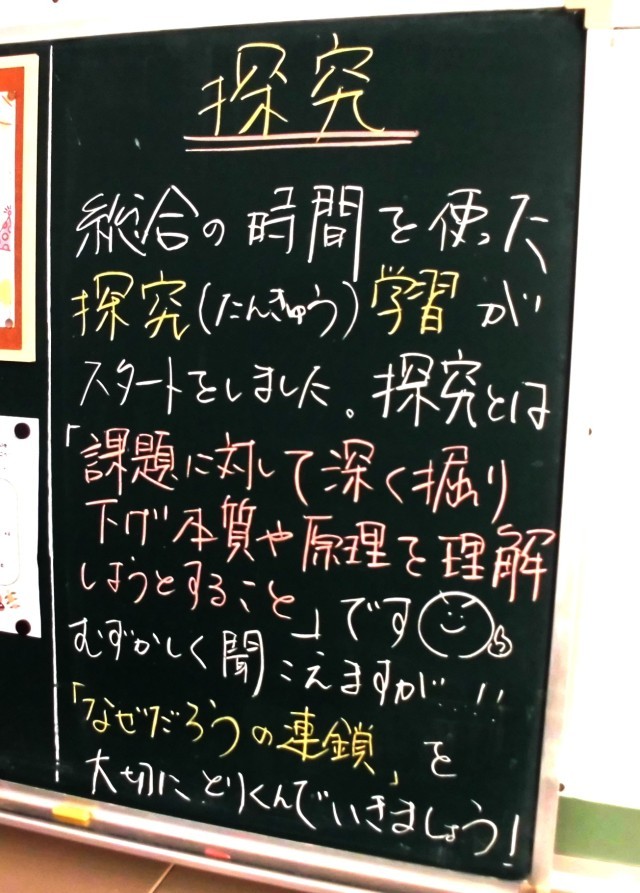 探究
総合の時間を使った
探究(たんきゅう)学習が
スタートをしました。探究とは
「課題に対して深く掘り
下げ本質や原理を理解
しようとすること」です
むずかしく聞こえますが‥!!
「なぜだろうの連鎖」を
大切にとりくんでいきましょう!